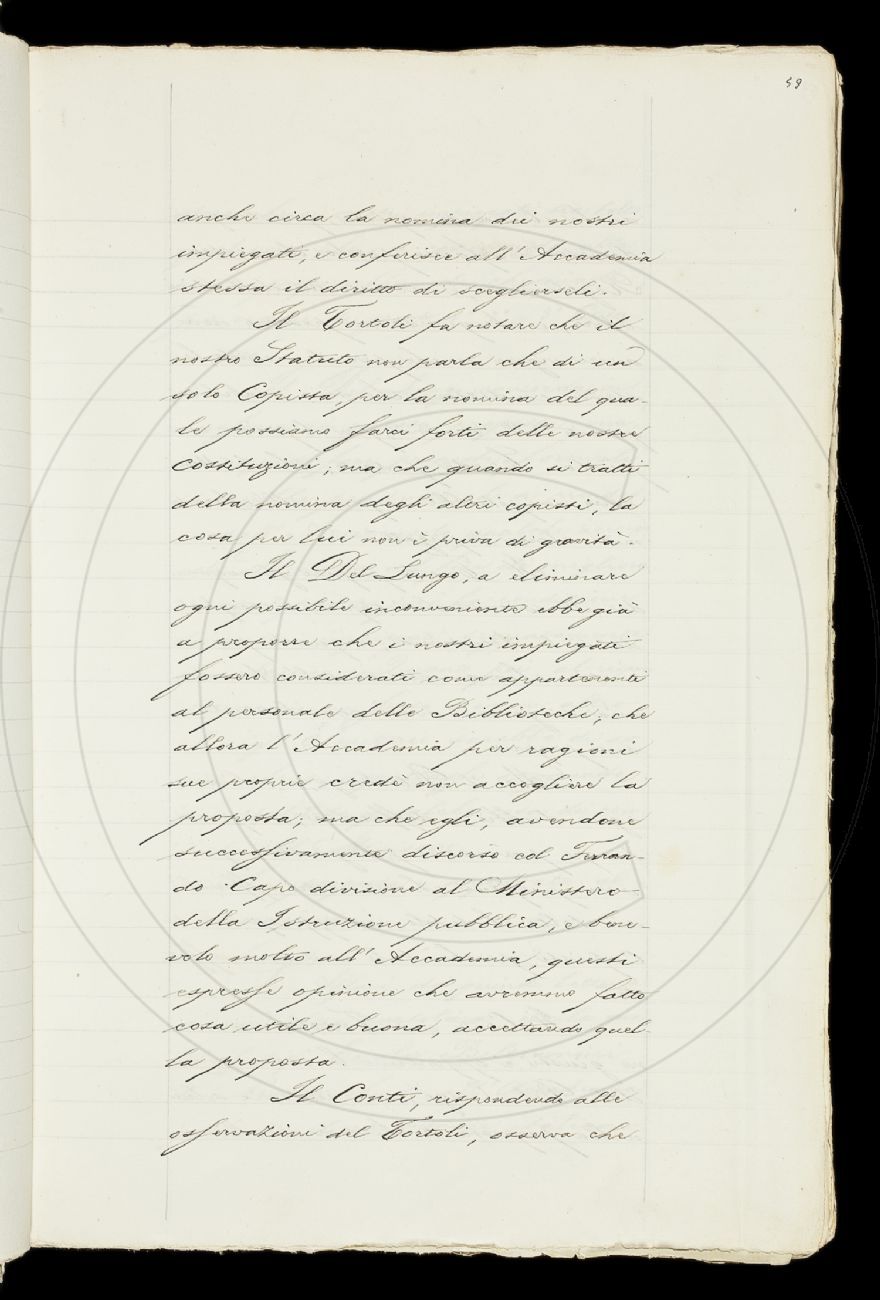 59
anche circa la nomina dei nostri
impiegati, e conferisce all'Accademia
stessa il diritto di sceglierseli.
Il Tortoli fa notare che il
nostro Statuto non parla che di un
solo Copista, per la nomina del qua-
le possiamo farci forti delle nostre
costituzioni; ma che quando si tratti
della nomina degli altri copisti, la
cosa per lui non è priva di gravità.
Il Del Lungo, a eliminare
ogni possibile inconveniente ebbe già
a proporre che i nostri impiegati
fossero considerati come appartenenti
al personale delle Biblioteche; che
allora l'Accademia per ragioni
sue proprie credè non accogliere la
proposta; ma che egli, avendone
successivamente discorso col Feran-
do Capo divisione al Ministero
della Istruzione pubblica, e bene-
volo molto all'Accademia, questi
espresse opinione che avremmo fatto
cosa utile e buona, accettando quel-
la proposta.
Il Conti, rispondendo alle
osservazioni del Tortoli, osserva che